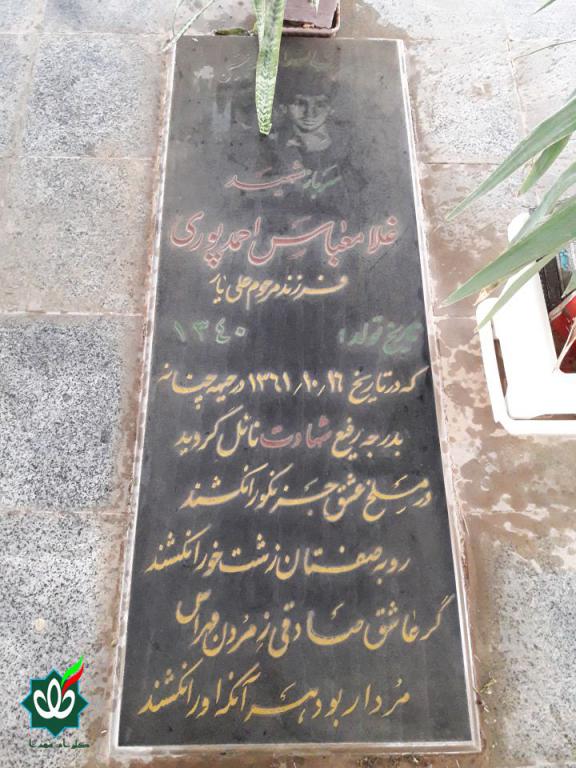 سرباز شهید
غلامعباس احمدپوری
فرزند مرحوم علی یار
تاریخ تولد: ۱۳۴۰
که در تاریخ ۱۳۶۱/۱۰/۱۶ در جبهه چنانه
بدرجه رفیع شهادت نائل گردید
در مسلخ عشق جز نکو را نکشند
روبه صفتان زشت خو را نکشند
گر عاشق صادقی ز مردن مهراس
مردار بود هر آنکه او را نکشند